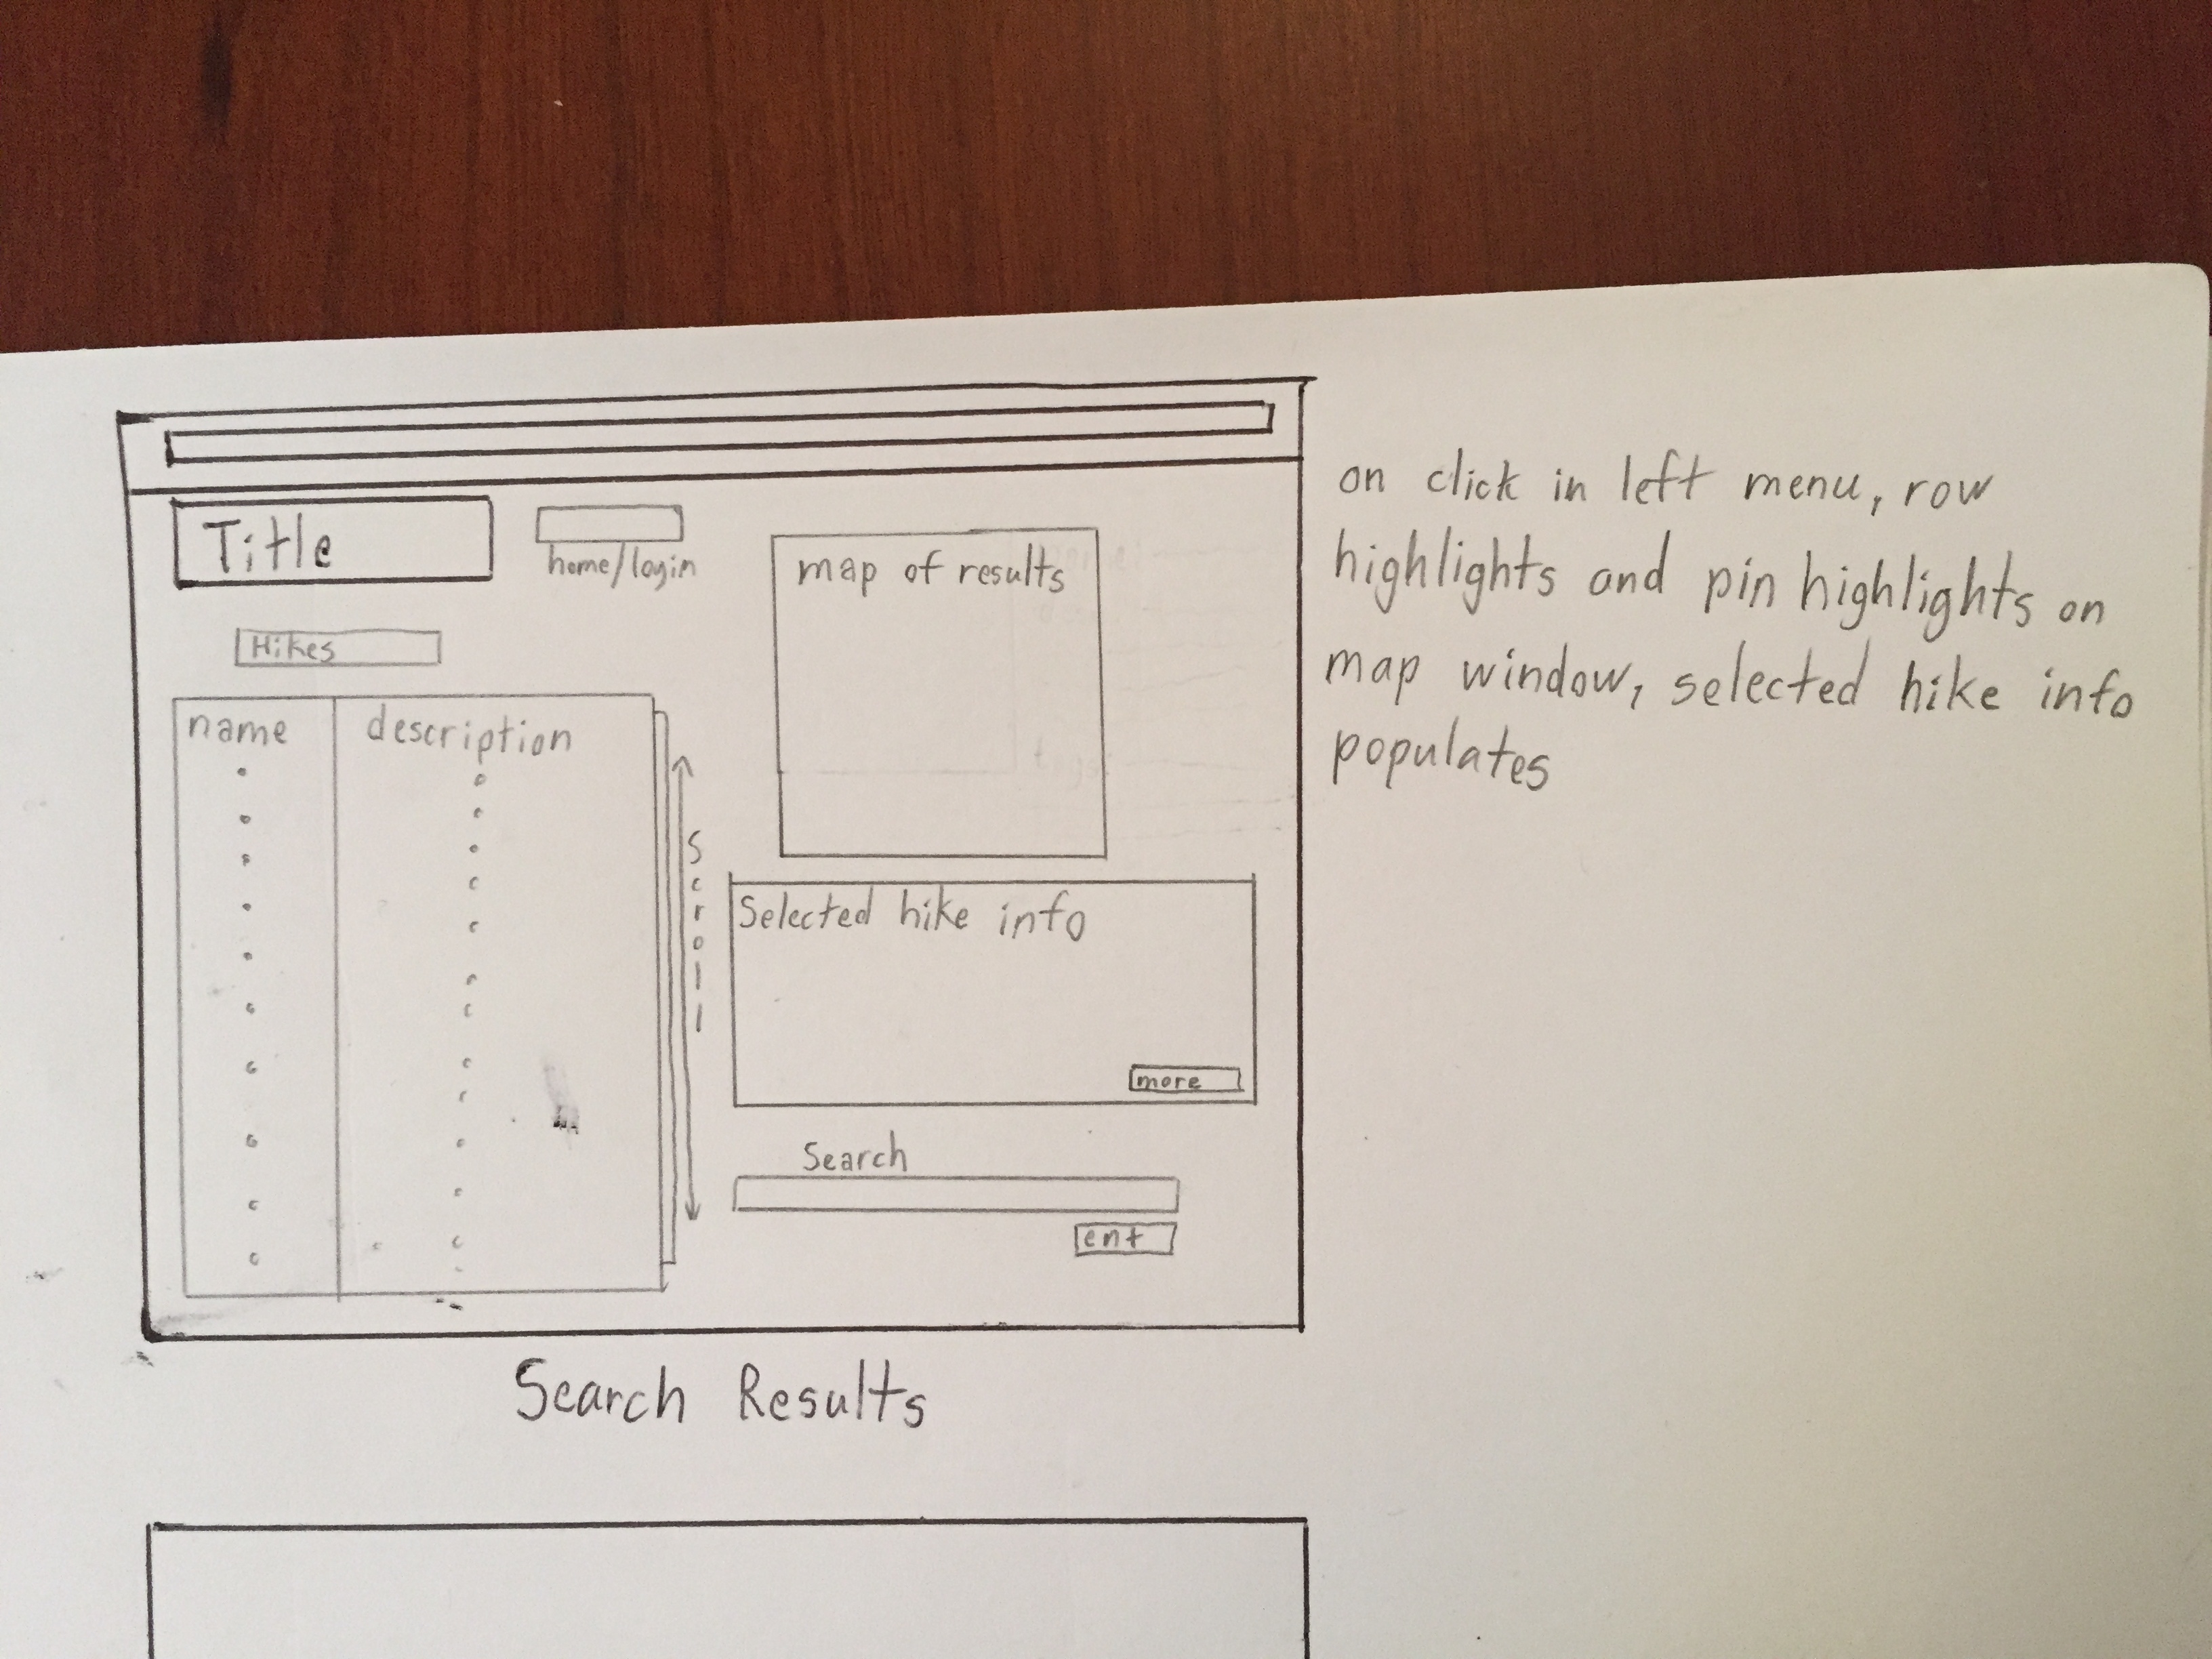 Title
home/login
Hikes
name
description
scroll
map of results
Selected hike info
more
Search
ent
on click in left menu, row
highlights and pin highlights on
map window, selected hike info
populates
Search Results